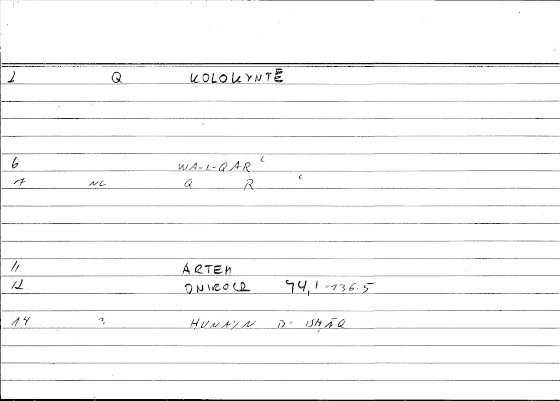 1 Q KOLOKYNTĒ
6 WA-L-QARʿ
7 NL Q R ʿ
11 ARTEM
12 ONIROCR 74,1-136.5
14 ? HUNAYN B. ISḤĀQ